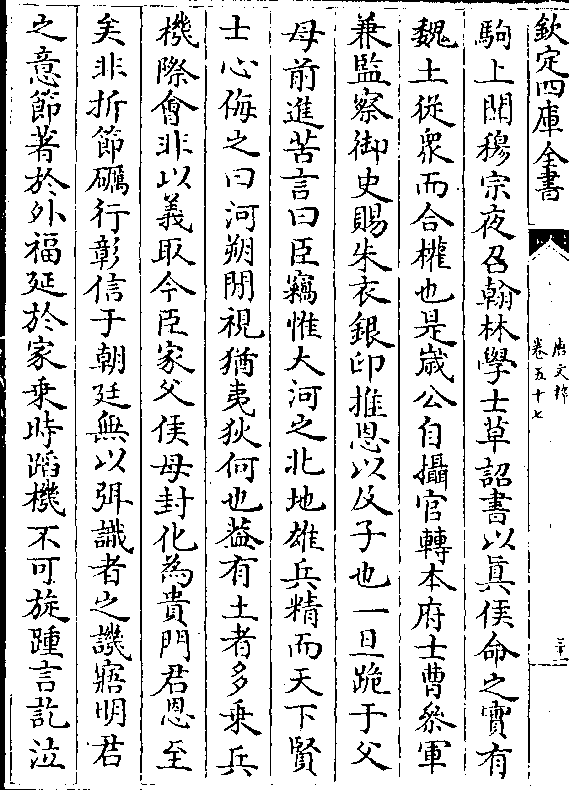 欽定四庫全書
唐文粹
卷五十七
駒上聞穆宗夜召翰林學士草詔書以真侯命之實有
魏土從衆而合權也是歲公自攝官轉本府士曹叅軍
兼監察御史賜朱衣銀印推恩以及子也一旦跪于父
母前進苦言曰臣竊惟大河之北地雄兵精而天下賢
士心侮之曰河朔間視猶夷狄何也葢有土者多乗兵
機際會非以義取今臣家父侯母封化為貴門君恩至
矣非折節礪行彰信于朝廷無以弭識者之譏寤明君
之意節著於外福延於家乗時蹈機不可旋踵言訖泣